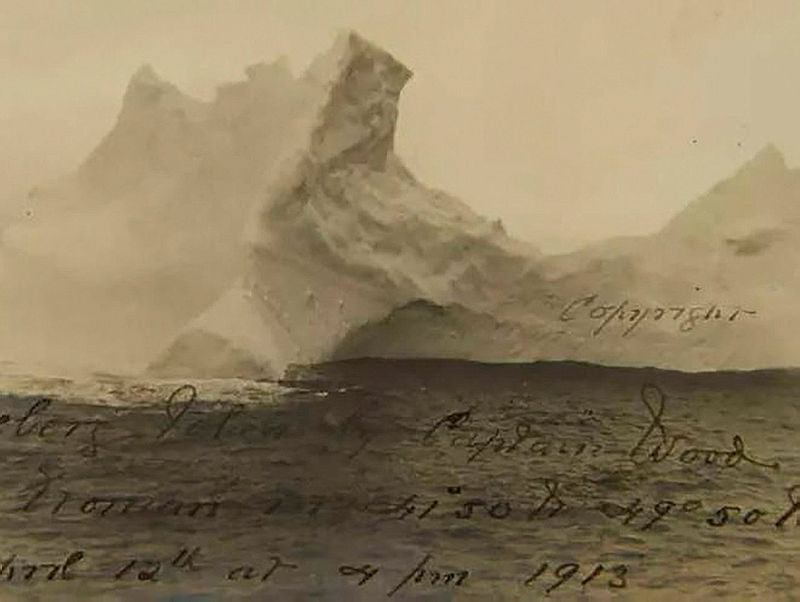 Copyright
berg Taken by Captain Wood
Roman in 41°50 N 49°50 W
April 12th at 4 pm 1913